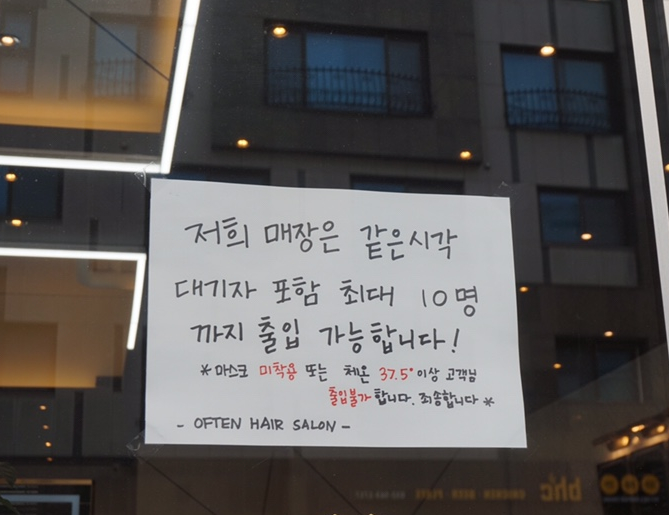 저희 매장은 같은시각
대기자 포함 최대 10명
까지 출입 가능합니다!
*마스크 미착용 또는 체온 37.5° 이상 고객님
출입불가 합니다. 죄송합니다*
- OFTEN HAIR SALON -
bhc
CHICKEN BEER PLATE